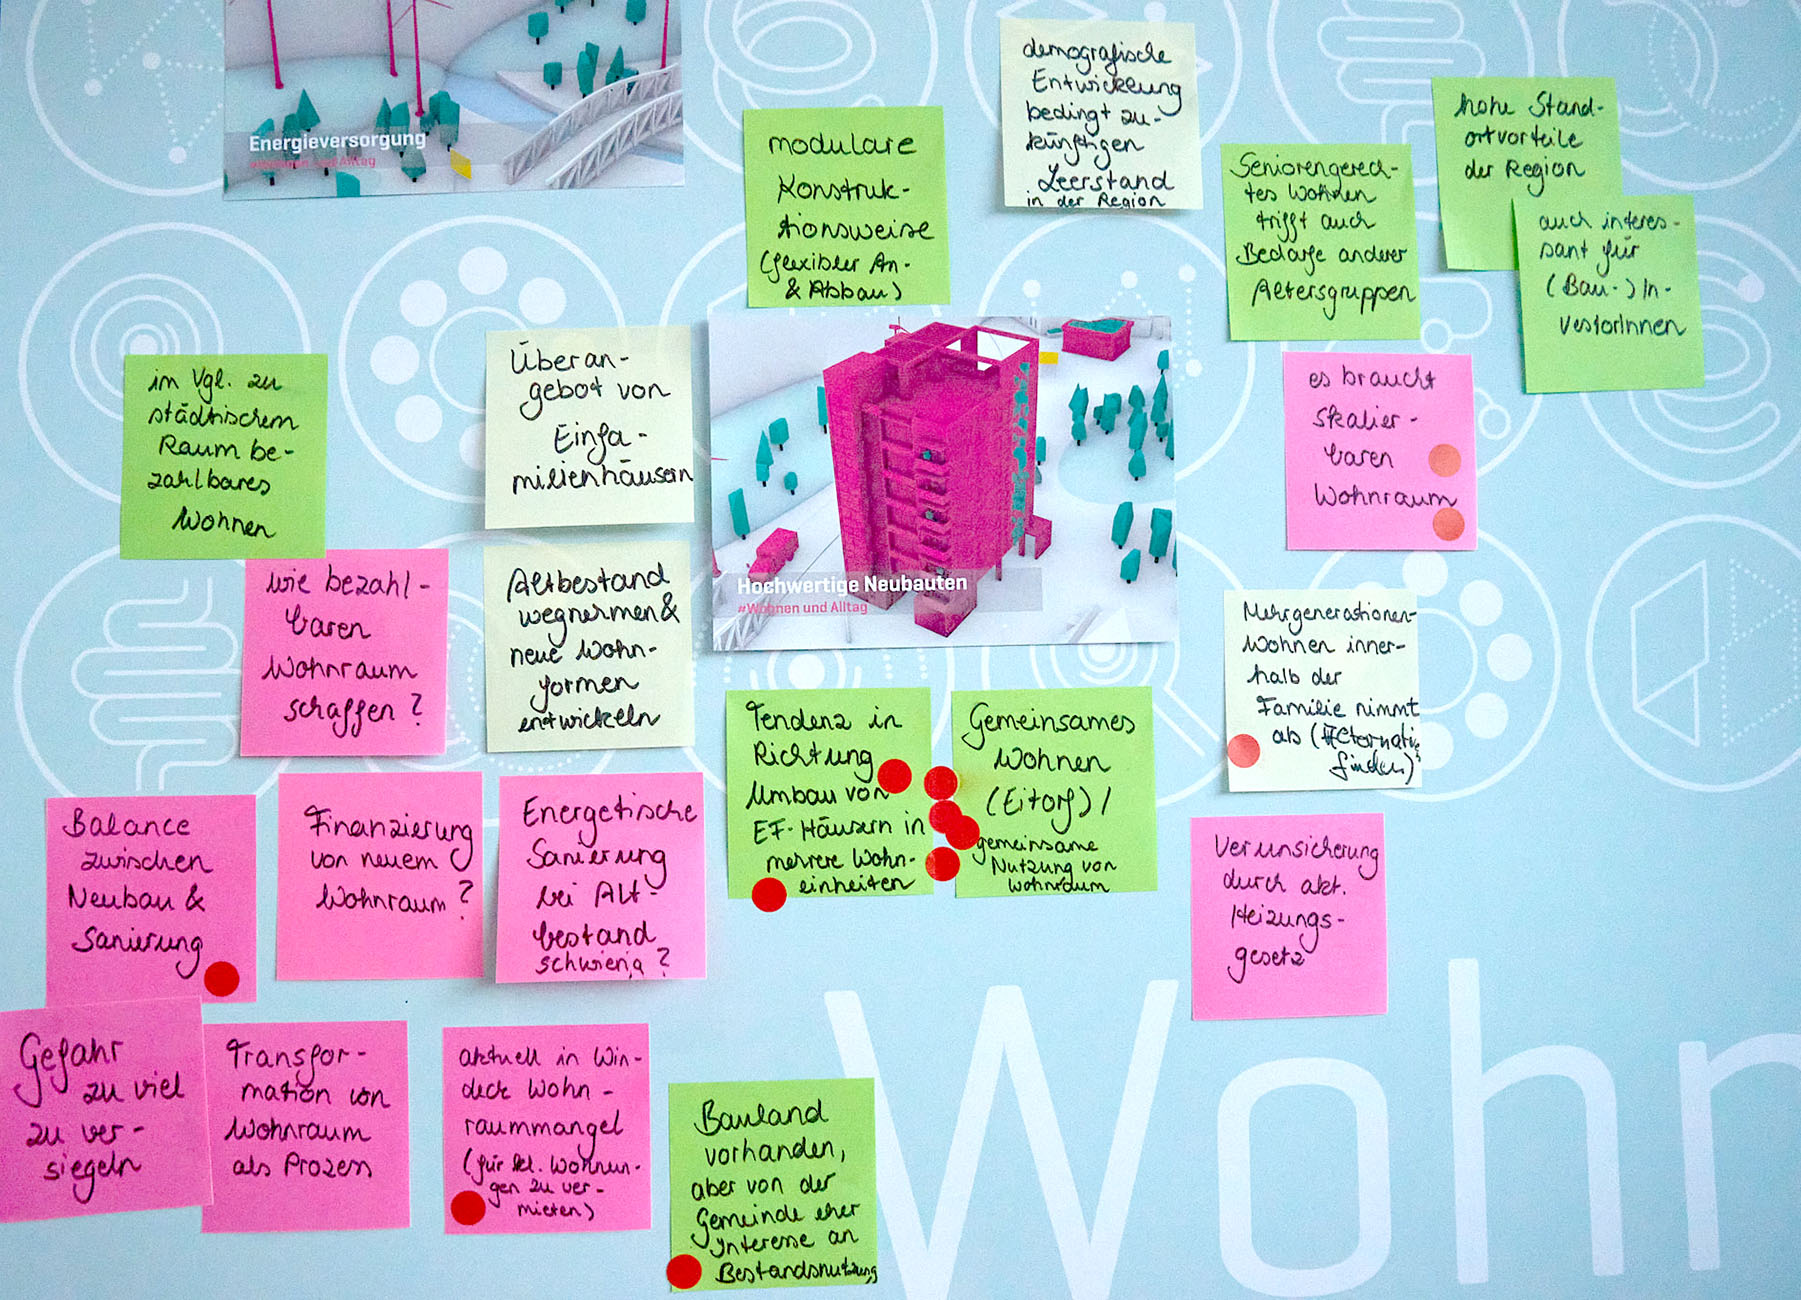 Energieversorgung
#Wohnen und Alltag
demografische
Entwicklung
bedingt zu-
künftigen
Leerstand
in der Region
modulare
Konstruk-
tionsweise
(flexibler An-
& Abbau)
Seniorengerech-
tes Wohnen
trifft auch
Bedarfe anderer
Altersgruppen
hohe Stand-
ortvorteile
der Region
auch interes-
sant für
(Bau-) In-
vestorInnen
im Vgl. zu
städtischem
Raum be-
zahlbares
Wohnen
Überan-
gebot von
Einfa-
milienhäusern
Hochwertige Neubauten
#Wohnen und Alltag
es braucht
skalier-
baren
Wohnraum
wie bezahl-
baren
Wohnraum
schaffen?
Altbestand
wegnehmen &
neue Wohn-
formen
entwickeln
Mehrgenerationen-
Wohnen inner-
halb der
Familie nimmt
ab (Alternativ
finden)
Tendenz in
Richtung
Umbau von
EF-Häusern in
mehrere Wohn-
einheiten
Gemeinsames
Wohnen
(Eitorf) /
gemeinsame
Nutzung von
Wohnraum
Balance
zwischen
Neubau &
Sanierung
Finanzierung
von neuem
Wohnraum?
Energetische
Sanierung
bei Alt-
bestand
schwierig?
Verunsicherung
durch akt.
Heizungs-
gesetz
Gefahr
zu viel
zu ver-
siegeln
Transfor-
mation von
Wohnraum
als Prozess
aktuell in Win-
deck Wohn-
raummangel
(für kl. Wohnun-
gen zu ver-
mieten)
Bauland
vorhanden,
aber von der
Gemeinde eher
Interesse an
Bestandsnutzung
Wohn